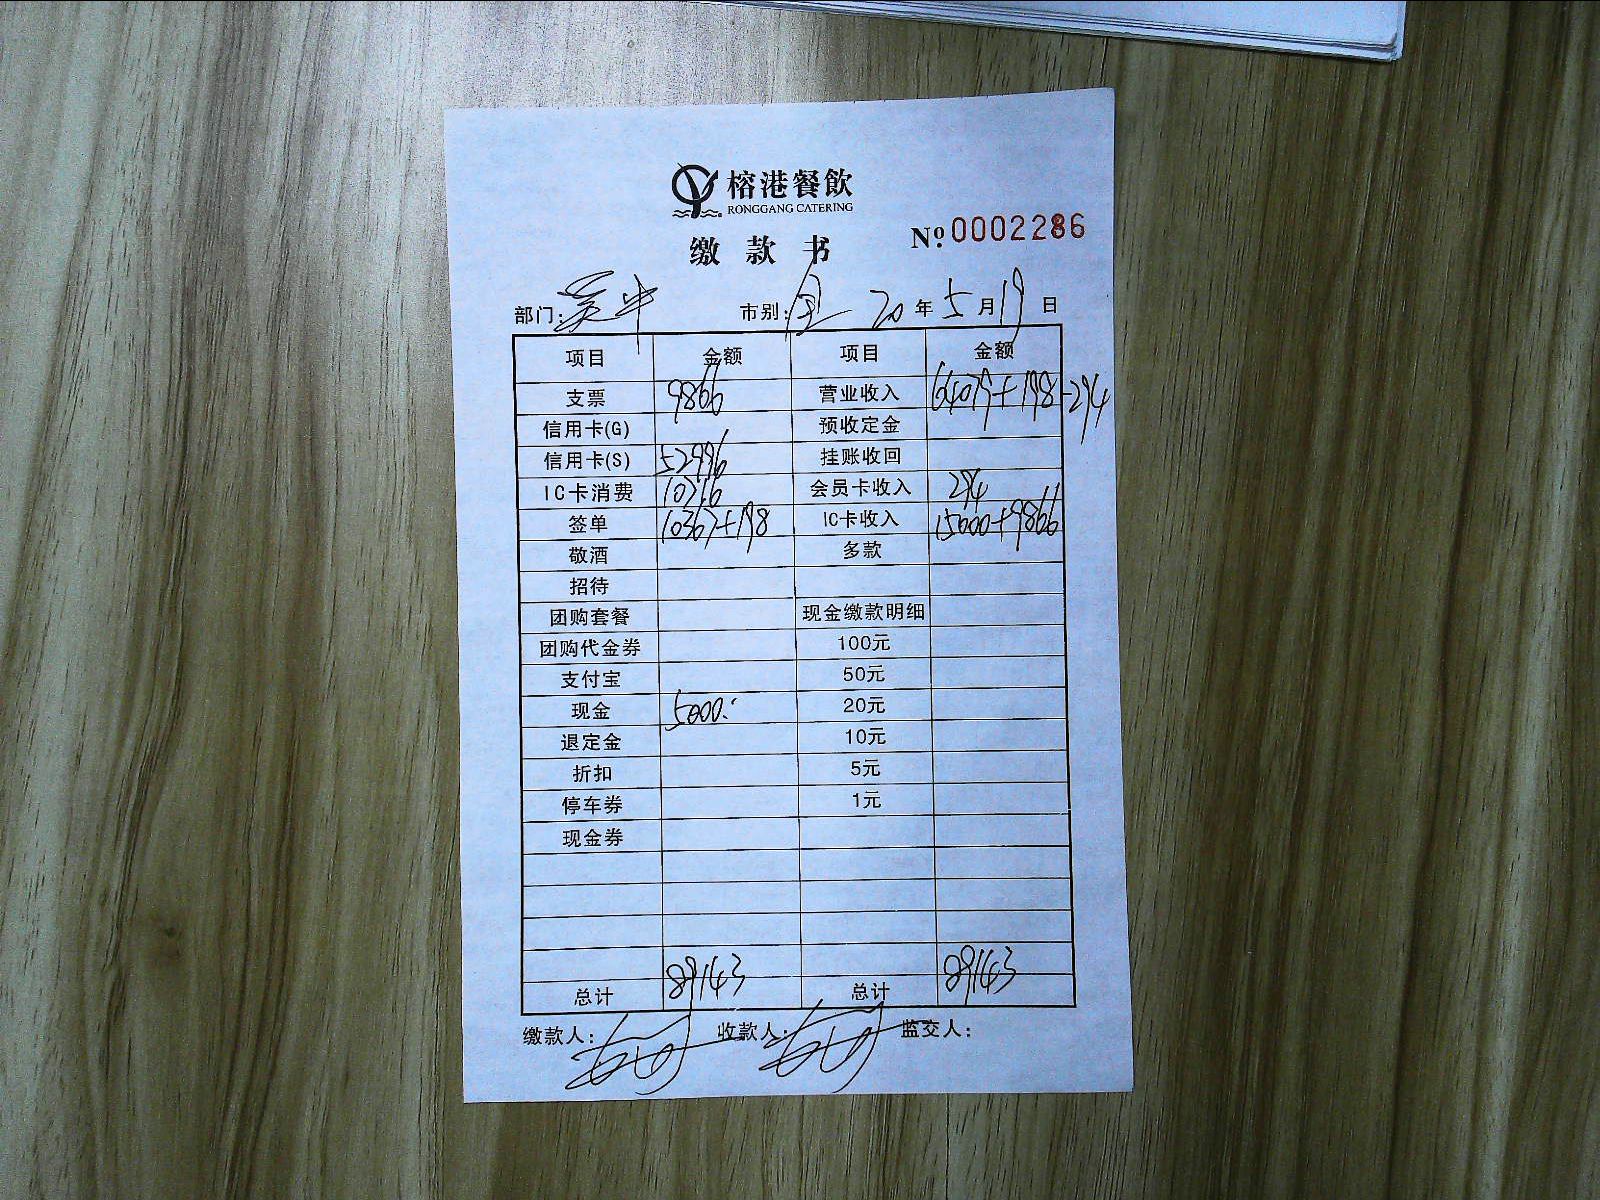 榕港餐飲
RONGGANG CATERING
缴款书
№ 0002286
部门: 市别: 全 20年5月19日
项目 金额 项目 金额
支票 9866 营业收入 64079+198-294
信用卡(G) 预收定金
信用卡(S) 52996 挂账收回
IC卡消费 10716 会员卡收入 294
签单 10367+198 IC卡收入 15000+9866
敬酒 多款
招待
团购套餐 现金缴款明细
团购代金券 100元
支付宝 50元
现金 5000.- 20元
退定金 10元
折扣 5元
停车券 1元
现金券
总计 89143 总计 89143
缴款人: 收款人: 监交人: